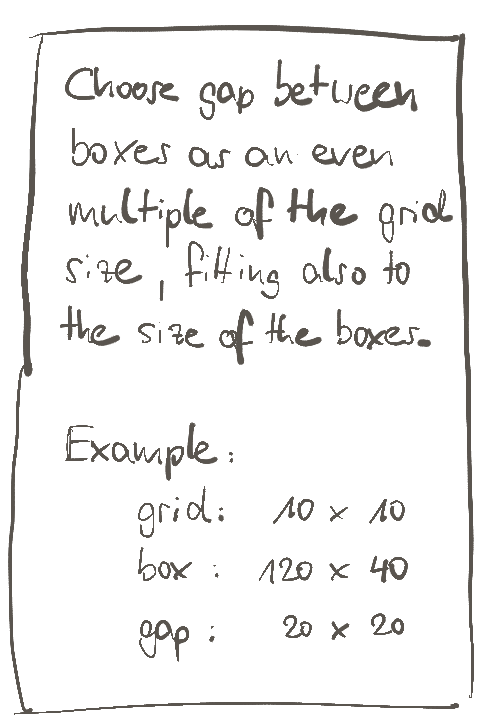 Choose gap between
boxes as an even
multiple of the grid
size, fitting also to
the size of the boxes.
Example:
grid: 10 x 10
box : 120 x 40
gap : 20 x 20